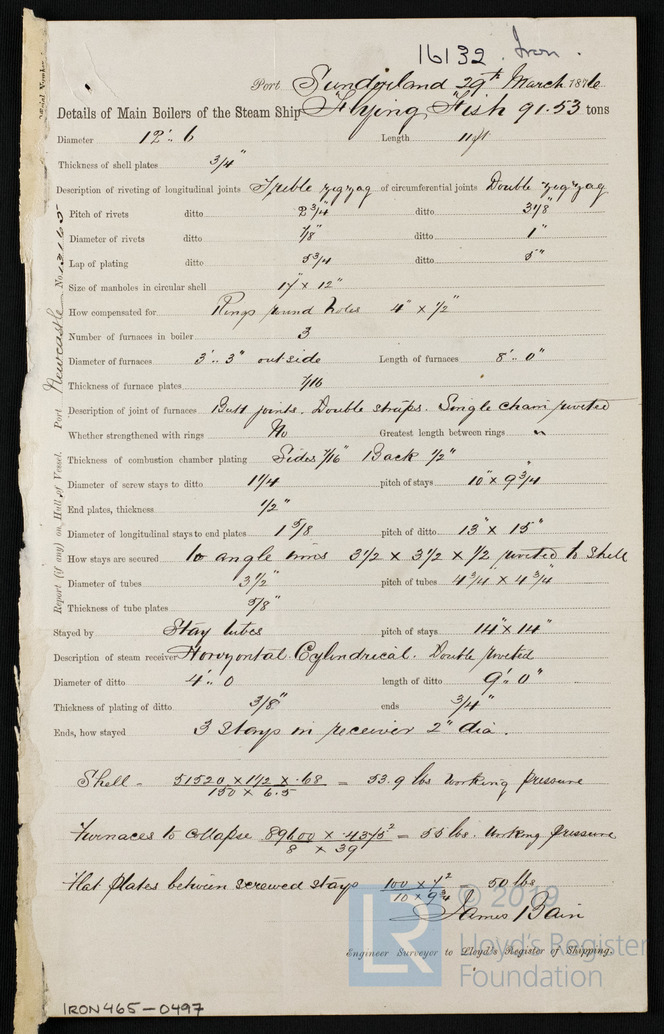 16132 Iron.
Port Sunderland 29th March 1876
Details of Main Boilers of the Steam Ship "Flying Fish" 91.53 tons
Diameter 12'.. 6 Length
Thickness of shell plates 3/4"
Description of riveting of longitudinal joints Treble zigzag of circumferential joints Double zigzag
Pitch of rivets ditto 2 3/4" ditto 3 1/8"
Diameter of rivets ditto 7/8" ditto 1"
Lap of plating ditto 5 3/4 ditto 5"
Size of manholes in circular shell x 12"
How compensated for Rings round holes 4" x 1/2"
Number of furnaces in boiler 3
Diameter of furnaces 3'.. 3" outside Length of furnaces 8'.. 0"
Thickness of furnace plates 7/16
Description of joint of furnaces Butt joints. Double straps. Single chain riveted
Whether strengthened with rings No Greatest length between rings "
Thickness of combustion chamber plating Sides 7/16" Back 1/2"
Diameter of screw stays to ditto 1 1/4 pitch of stays 10" x 9 3/4"
End plates, thickness 1/2"
Diameter of longitudinal stays to end plates 1 5/8 pitch of ditto 13" x 15"
How stays are secured to angle irons 3 1/2 x 3 1/2 x 1/2 riveted to shell
Diameter of tubes 3 1/2" pitch of tubes 4 3/4 x 4 3/4"
Thickness of tube plates 5/8"
Stayed by Stay tubes pitch of stays 14" x 14"
Description of steam receiver Horizontal Cylindrical. Double riveted
Diameter of ditto 4'.. 0 length of ditto 9'.. 0"
Thickness of plating of ditto 3/8" ends 3/4"
Ends, how stayed 3 Stays in receiver 2" dia.
Shell - 51520 x 1 1/2 x .68 = 53.9 lbs working pressure
150 x 6.5
Furnaces to collapse 89600 x .4375² = 55 lbs. working pressure
8 x 39
Flat plates between screwed stays 100 x 7² 50 lbs
10 x 9 3/4
James Bain
Engineer Surveyor to Lloyd's Register of Shipping.
Report (if any) on Hull of Vessel. Port Newcastle No. 13165
IRON465-0497
LR © 2019
Lloyd's Register
Foundation